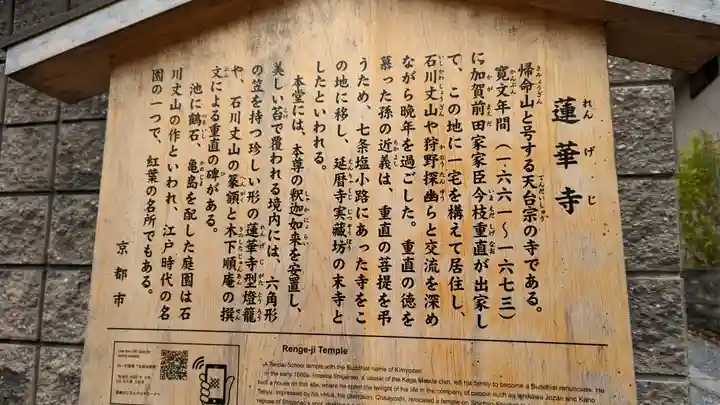 蓮華寺
れんげじ
帰命山と号する天台宗の寺である。
寛文年間(一六六一〜一六七三)
に加賀前田家家臣今枝重直が出家し
て、この地に一宅を構えて居住し、
石川丈山や狩野探幽らと交流を深め
ながら晩年を過ごした。重直の徳を
慕った孫の近義は、重直の菩提を弔
うため、七条塩小路にあった寺をこ
の地に移し、延暦寺実蔵坊の末寺と
したといわれる。
本堂には、本尊の釈迦如来を安置し、
美しい苔で覆われる境内には、六角形
の笠を持つ珍しい形の蓮華寺型燈籠
や、石川丈山の篆額と木下順庵の撰
文による重直の碑がある。
池に鶴石、亀島を配した庭園は石
川丈山の作といわれ、江戸時代の名
園の一つで、紅葉の名所でもある。
京都市
Renge-ji Temple
A Tendai School temple with the Buddhist name of Kimyozan.
In the early 1660s, Imaeda Shigenao, a vassal of the Kaga Maeda clan, left his family to become a Buddhist renunciate. He
built a house on this site, where he spent the twilight of his life in the company of people such as Ishikawa Jozan and Kano
Tanyu. Impressed by his virtue, his grandson, Chikayoshi, relocated a temple